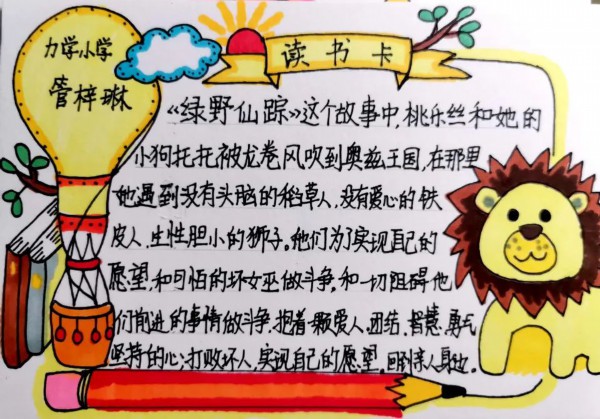 力学小学
管梓琳
读书卡
《绿野仙踪》这个故事中,桃乐丝和她的
小狗托托被龙卷风吹到奥兹王国,在那里
她遇到没有头脑的稻草人,没有爱心的铁
皮人,生性胆小的狮子。他们为了实现自己的
愿望,和可怕的坏女巫做斗争,和一切阻碍他
们前进的事情做斗争,抱着一颗爱人、团结、智慧、勇气
坚持的心,打败坏人,实现自己的愿望。回到亲人身边。